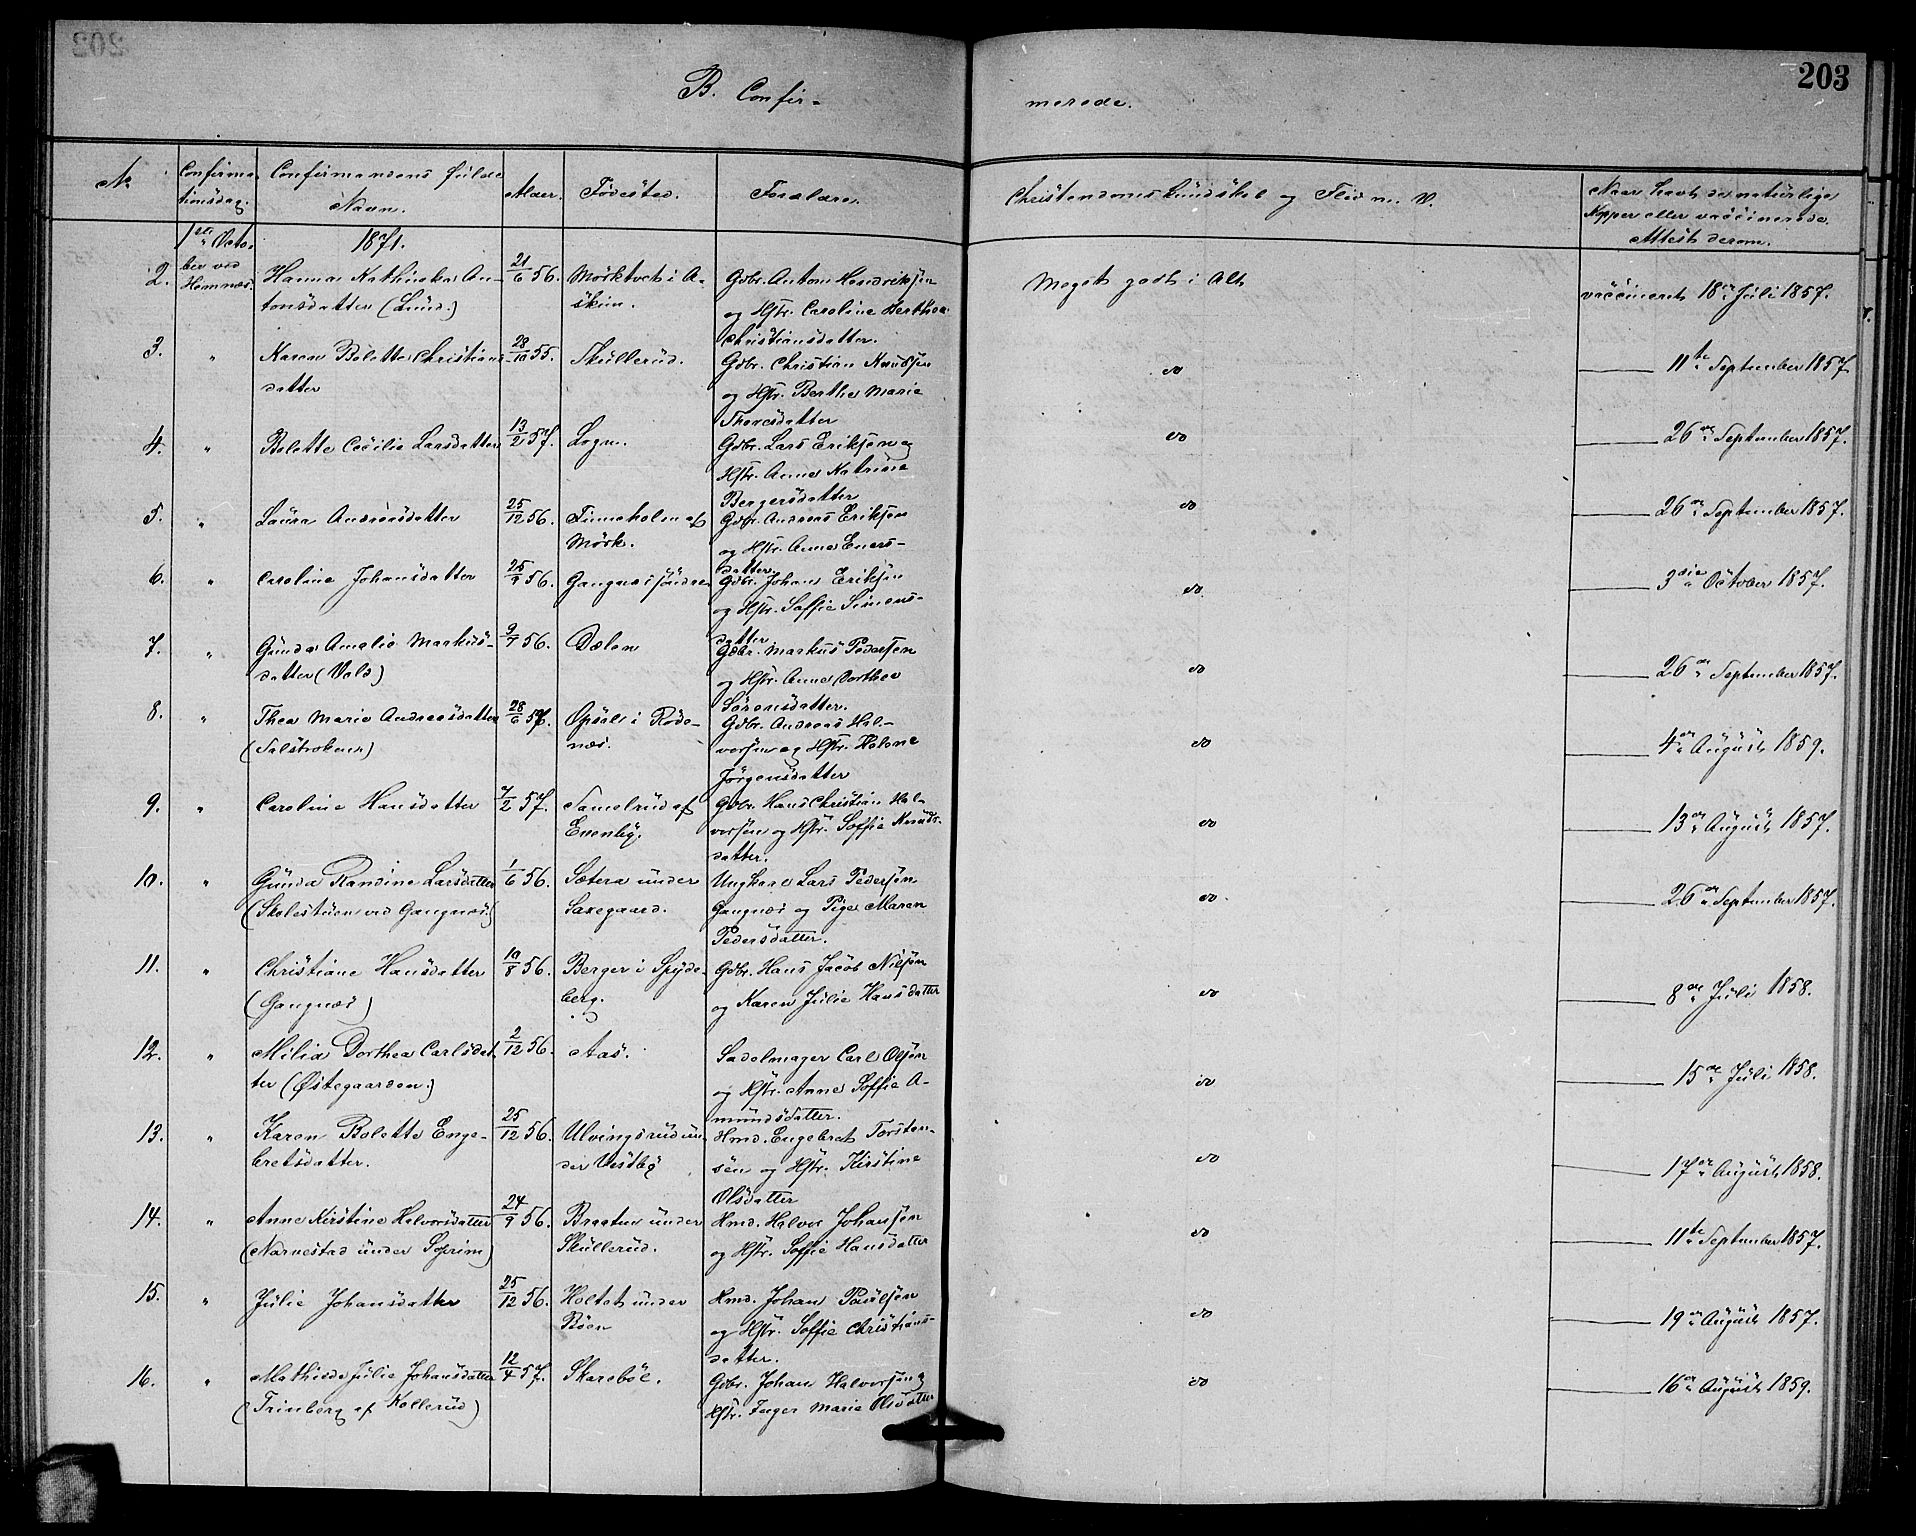 203
B. Confir-
merede.
No
Confirma-
tionsdag.
Confirmandens fulde
Navn.
Alder.
Fødested.
Forældre.
Christendomskundskab og Flid m. V.
Naar havt de naturlige
Kopper eller vaccinerede.
Attest derom.
1ste Octo-
ber ved
Hemnæs.
1871.
2. Hanna Kathinka An-
tonsdatter (Lund.)
21/6 56. Mörktvet i A-
skim.
Gdbr. Anton Hendriksen
og Hstr. Caroline Berthea
Christiansdatter.
Meget godt i Alt
vaccineret 18de Juli 1857.
3. " Karen Bolette Christians-
datter
28/10 55. Skullerud.
Gdbr. Christian Knudsen
og Hstr. Berthe Marie
Thoresdatter
do
11te September 1857
4. " Bolette Cecilie Larsdatter
13/2 57. Løgn.
Gdbr. Lars Eriksen og
Hstr. Anne Katrine
Bergersdatter
do
26de September 1857.
5. " Laura Andreasdatter
25/12 56. Finneholen af
Mörk.
Gdbr. Andreas Eriksen
og Hstr. Anne Eners-
datter.
do
26de September 1857.
6. " Caroline Johansdatter
25/9 56. Gangnæs söndre
Gdbr. Johan Eriksen
og Hstr. Soffie Simens-
datter
do
3die October 1857.
7. " Gunda Amalie Markus-
datter (Vold)
9/7 56. Dælen
Gdbr. Markus Pedersen
og Hstr. Anne Dorthea
Sörensdatter.
do
26de September 1857.
8. " Thea Marie Andreasdatter
28/6 57. Opsal i Röde-
næs.
Gdbr. Andreas Hal-
vorsen og Hstr. Helene
Jörgensdatter
do
4de August 1859.
9. " Caroline Hansdatter
7/2 57. Samelrud af
Evenby.
Gdbr. Hans Christian Hal-
vorsen og Hstr. Soffie Knuds-
datter.
do
13de August 1857.
10. " Gunda Randine Larsdatter
(Skolestuen ved Gangnæs.)
1/6 56. Sætera under
Saxegaard.
Ungkarl Lars Pedersen
Gangnæs og Pige Maren
Pedersdatter.
do
26de September 1857.
11. " Christiane Hansdatter
(Gangnæs)
10/8 56. Berger i Spyde-
berg.
Gdbr. Hans Jacob Nilsen
og Karen Julie Hansdatter
do
8de Juli 1858.
12. " Milia Dorthea Carlsdat-
ter (Østegaarden.)
2/12 56. Aas.
Sadelmager Carl Olsen
og Hstr. Anne Soffie A-
mundsdatter.
do
15de Juli 1858.
13. " Karen Bolette Enge-
bretsdatter.
25/12 56. Ulvingsrud un-
der Vestby
Hmd. Engebret Torsten-
sen og Hstr. Kirstine
Olsdatter
do
17de August 1858.
14. " Anne Kirstine Halvorsdatter
(Narnestad under Soprim)
24/9 56. Braaten under
Skullerud.
Hmd. Halvor Johansen
og Hstr. Soffie Hansdatter
do
11te September 1857.
15. " Julie Johansdatter
25/12 56. Holtet under
Böen
Hmd. Johan Paulsen
og Hstr. Soffie Christians-
datter.
do
19de August 1857.
16. " Mathilde Julie Johansdatter
(Trinberg af Kollerud)
12/4 57. Skareböl.
Gdbr. Johan Halvorsen og
Hstr. Inger Marie Olsdatter
do
16de August 1859.